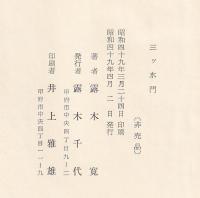 三ッ水門
(非売品)
昭和四十九年三月二十四日 印刷
昭和四十九年四月 二 日 発行
著者 露木 寛
甲府市中央四丁目九ノ二
発行者 露木千代
印刷者 井上雅雄
甲府市中央四丁目一ノ一九